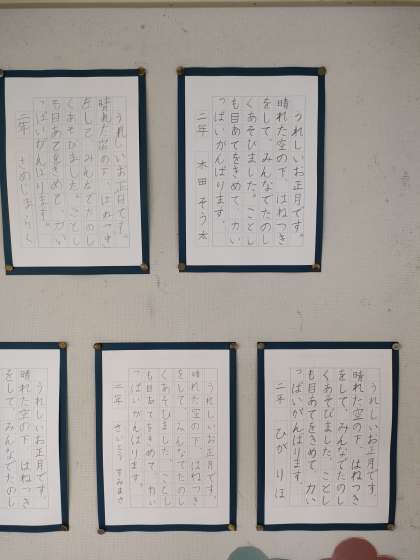 うれしいお正月です。
晴れた空の下、はねつき
をして、みんなでたのし
くあそびました。ことし
も目あてをきめて、力い
っぱいがんばります。
二年 木田 そう太
うれしいお正月です。
晴れた空の下、はねつき
をして、みんなでたのし
くあそびました。ことし
も目あてをきめて、力い
っぱいがんばります。
二年
うれしいお正月です。
晴れた空の下、はねつき
をして、みんなでたのし
くあそびました。ことし
も目あてをきめて、力い
っぱいがんばります。
二年 ひが りほ
うれしいお正月です。
晴れた空の下、はねつき
をして、みんなでたのし
くあそびました。ことし
も目あてをきめて、力い
っぱいがんばります。
二年 さいとう すみまさ
うれしいお正月です。
晴れた空の下、はねつき
をして、みんなでたのし